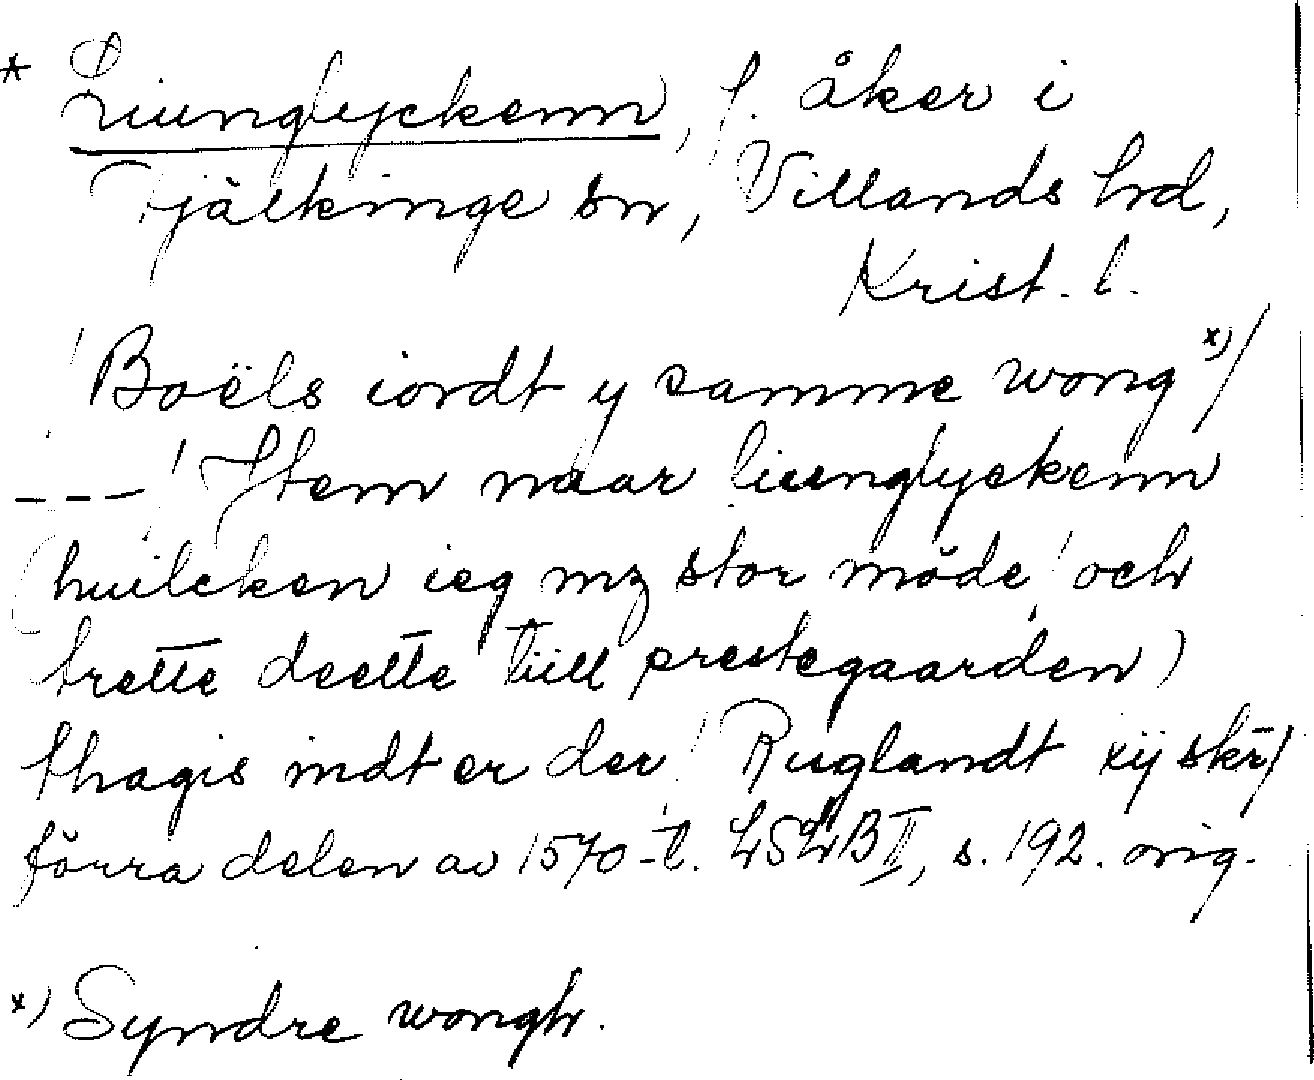 * Liunglyckenn, f. åker i
Fjälkinge sn, Villands hrd,
Krist. l.
! Boëls iordt y samme wong x) /
--- ! Item naar liunglyckenn
(huilcken ieg mz stor möde! och
trette deelte tiill prestegaarden)
thagis indt er der! Ruglandt xij skr /
förra delen av 1570-t. LSLB II, s. 192. orig.
x) Syndre wongh.